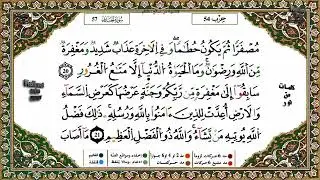 حزب 54
57
مُصْفَرًّا ثُمَّ يَكُونُ حُطَٰمًا ۖ وَفِى ٱلْأٓخِرَةِ عَذَابٌ شَدِيدٌ وَمَغْفِرَةٌ
مِّنَ ٱللَّهِ وَرِضْوَٰنٌ ۚ وَمَا ٱلْحَيَوٰةُ ٱلدُّنْيَآ إِلَّا مَتَٰعُ ٱلْغُرُورِ 20
سَابِقُوٓا۟ إِلَىٰ مَغْفِرَةٍ مِّن رَّبِّكُمْ وَجَنَّةٍ عَرْضُهَا كَعَرْضِ ٱلسَّمَآءِ
وَٱلْأَرْضِ أُعِدَّتْ لِلَّذِينَ ءَامَنُوا۟ بِٱللَّهِ وَرُسُلِهِۦ ۚ ذَٰلِكَ فَضْلُ
ٱللَّهِ يُؤْتِيهِ مَن يَشَآءُ ۚ وَٱللَّهُ ذُو ٱلْفَضْلِ ٱلْعَظِيمِ 21 مَآ أَصَابَ
كلمات
من
نور